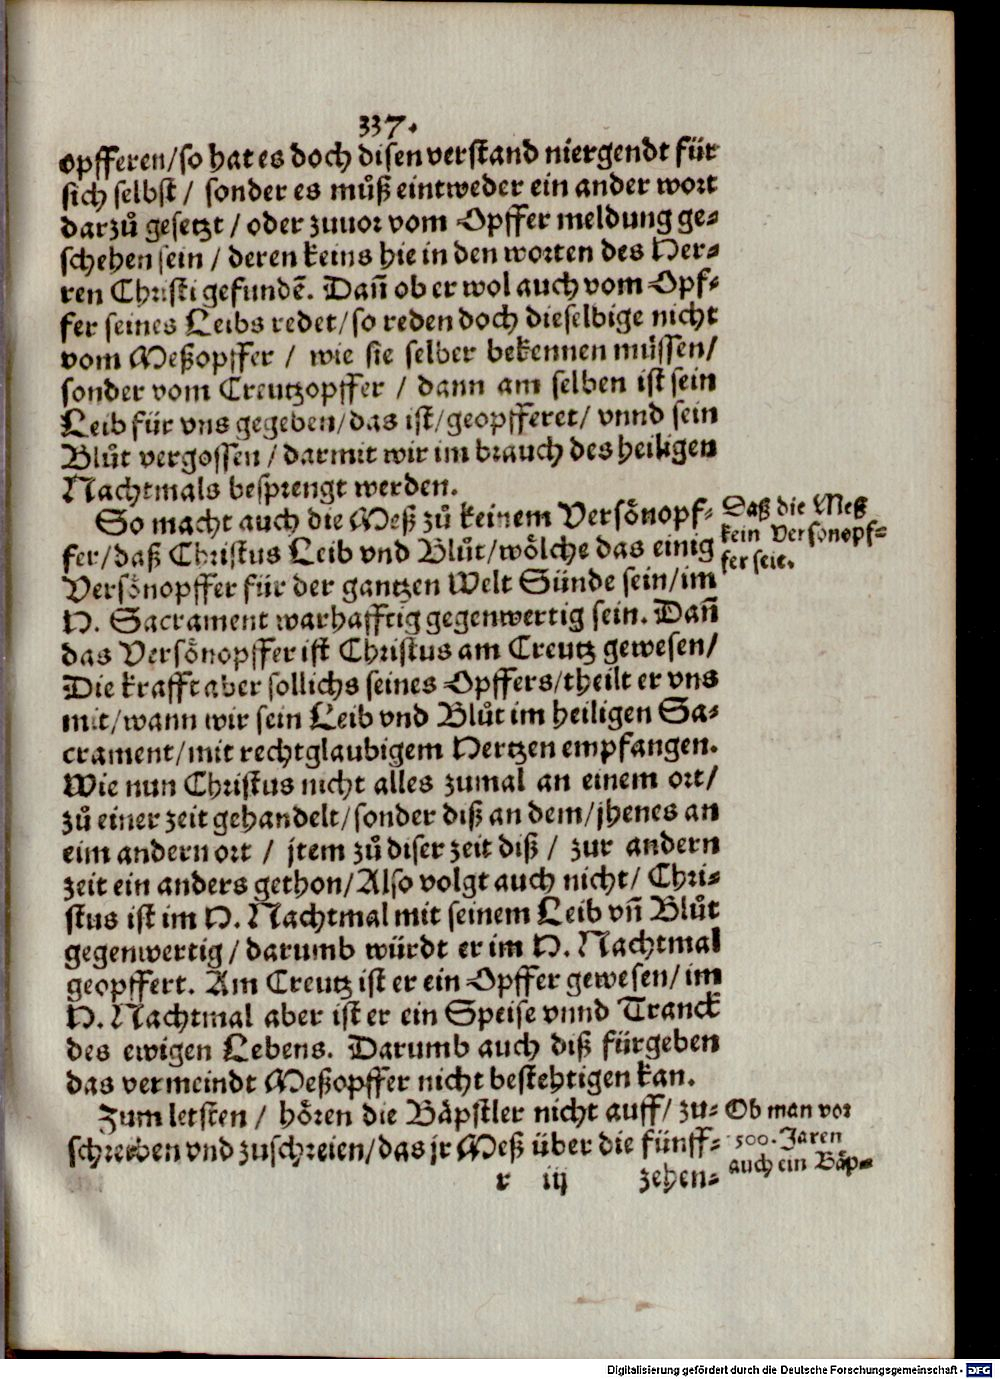 337.
opfferen/so hat es doch disen verstand niergendt für
sich selbst / sonder es muͦß eintweder ein ander wort
darzuͦ gesetzt / oder zuuor vom Opffer meldung ge-
schehen sein / deren keins hie in den worten des Her-
ren Christi gefundē. Dañ ob er wol auch vom Opf-
fer seines Leibs redet/so reden doch dieselbige nicht
vom Meßopffer / wie sie selber bekennen müssen/
sonder vom Creutzopffer / dann am selben ist sein
Leib für vns gegeben/das ist/geopfferet/ vnnd sein
Bluͦt vergossen / darmit wir im brauch des heiligen
Nachtmals besprengt werden.
So macht auch die Meß zuͦ keinem Versönopf-
fer/daß Christus Leib vnd Bluͦt/wölche das einig
Versönopffer für der gantzen Welt Sünde sein/im
H. Sacrament warhafftig gegenwertig sein. Dañ
das Versönopffer ist Christus am Creutz gewesen/
Die krafft aber sollichs seines Opffers/theilt er vns
mit/wann wir sein Leib vnd Bluͦt im heiligen Sa-
crament/mit rechtglaubigem Hertzen empfangen.
Wie nun Christus nicht alles zumal an einem ort/
zuͦ einer zeit gehandelt/sonder diß an dem/jhenes an
eim andern ort / jtem zuͦ diser zeit diß / zur andern
zeit ein anders gethon/Also volgt auch nicht/ Chri-
stus ist im H. Nachtmal mit seinem Leib vñ Bluͦt
gegenwertig / darumb würdt er im H. Nachtmal
geopffert. Am Creutz ist er ein Opffer gewesen/im
H. Nachtmal aber ist er ein Speise vnnd Tranck
des ewigen Lebens. Darumb auch diß fürgeben
das vermeindt Meßopffer nicht bestehtigen kan.
Zum letsten / hören die Bäpstler nicht auff/ zu-
schreiben vnd zuschreien/das jr Meß über die fünff-
r iij zehen-
Daß die Meß
kein Versönopf-
fer seie.
Ob man vor
500. Jaren
auch ein Bäp-
Digitalisierung gefördert durch die Deutsche Forschungsgemeinschaft - DFG